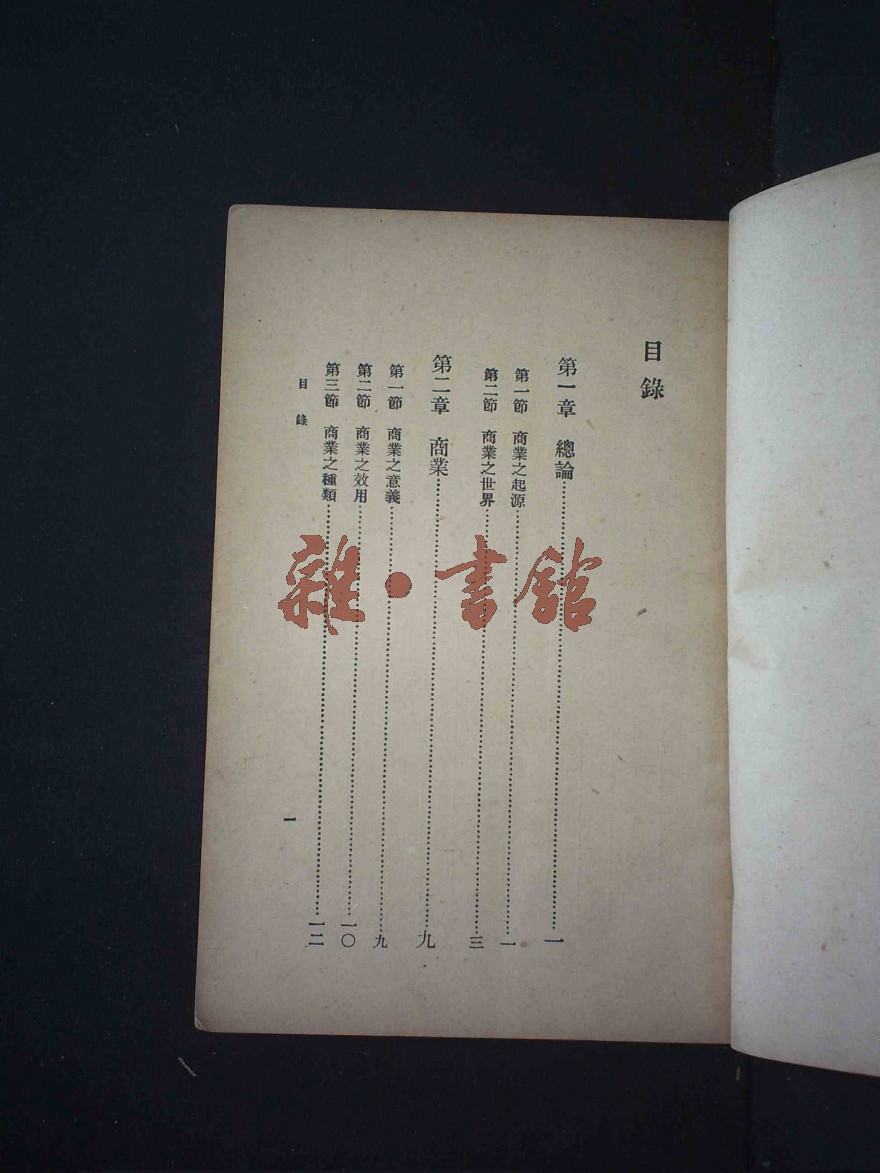 目錄
第一章 總論……一
第一節 商業之起源……一
第二節 商業之世界……三
第二章 商業……九
第一節 商業之意義……九
第二節 商業之效用……一〇
第三節 商業之種類……一二
目錄 一
雜·書館